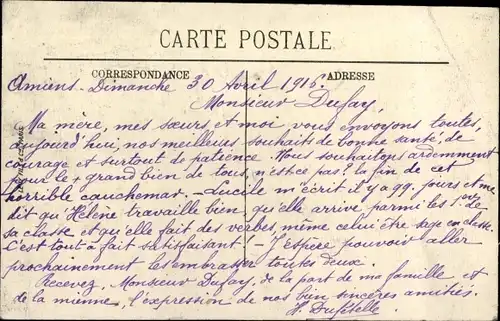 CARTE POSTALE
CORRESPONDANCE
ADRESSE
Amiens - Dimanche 30 Avril 1916.
Monsieur Dufay,
Ma mère, mes sœurs et moi vous envoyons toutes,
aujourd'hui, nos meilleurs souhaits de bonne santé, de
courage et surtout de patience. Nous souhaitons ardemment
pour le + grand bien de tous, n'est-ce pas, la fin de cet
horrible cauchemar. - Lucile m'écrit il y a qq. jours et me
dit qu'Hélène travaille bien, qu'elle arrive parmi les 1ères de
sa classe et qu'elle fait des verbes, même celui être sage en classe.
C'est tout à fait satisfaisant! - J'espère pouvoir aller
prochainement les embrasser toutes deux.
Recevez, Monsieur Dufay, de la part de ma famille et
de la mienne, l'expression de nos bien sincères amitiés.